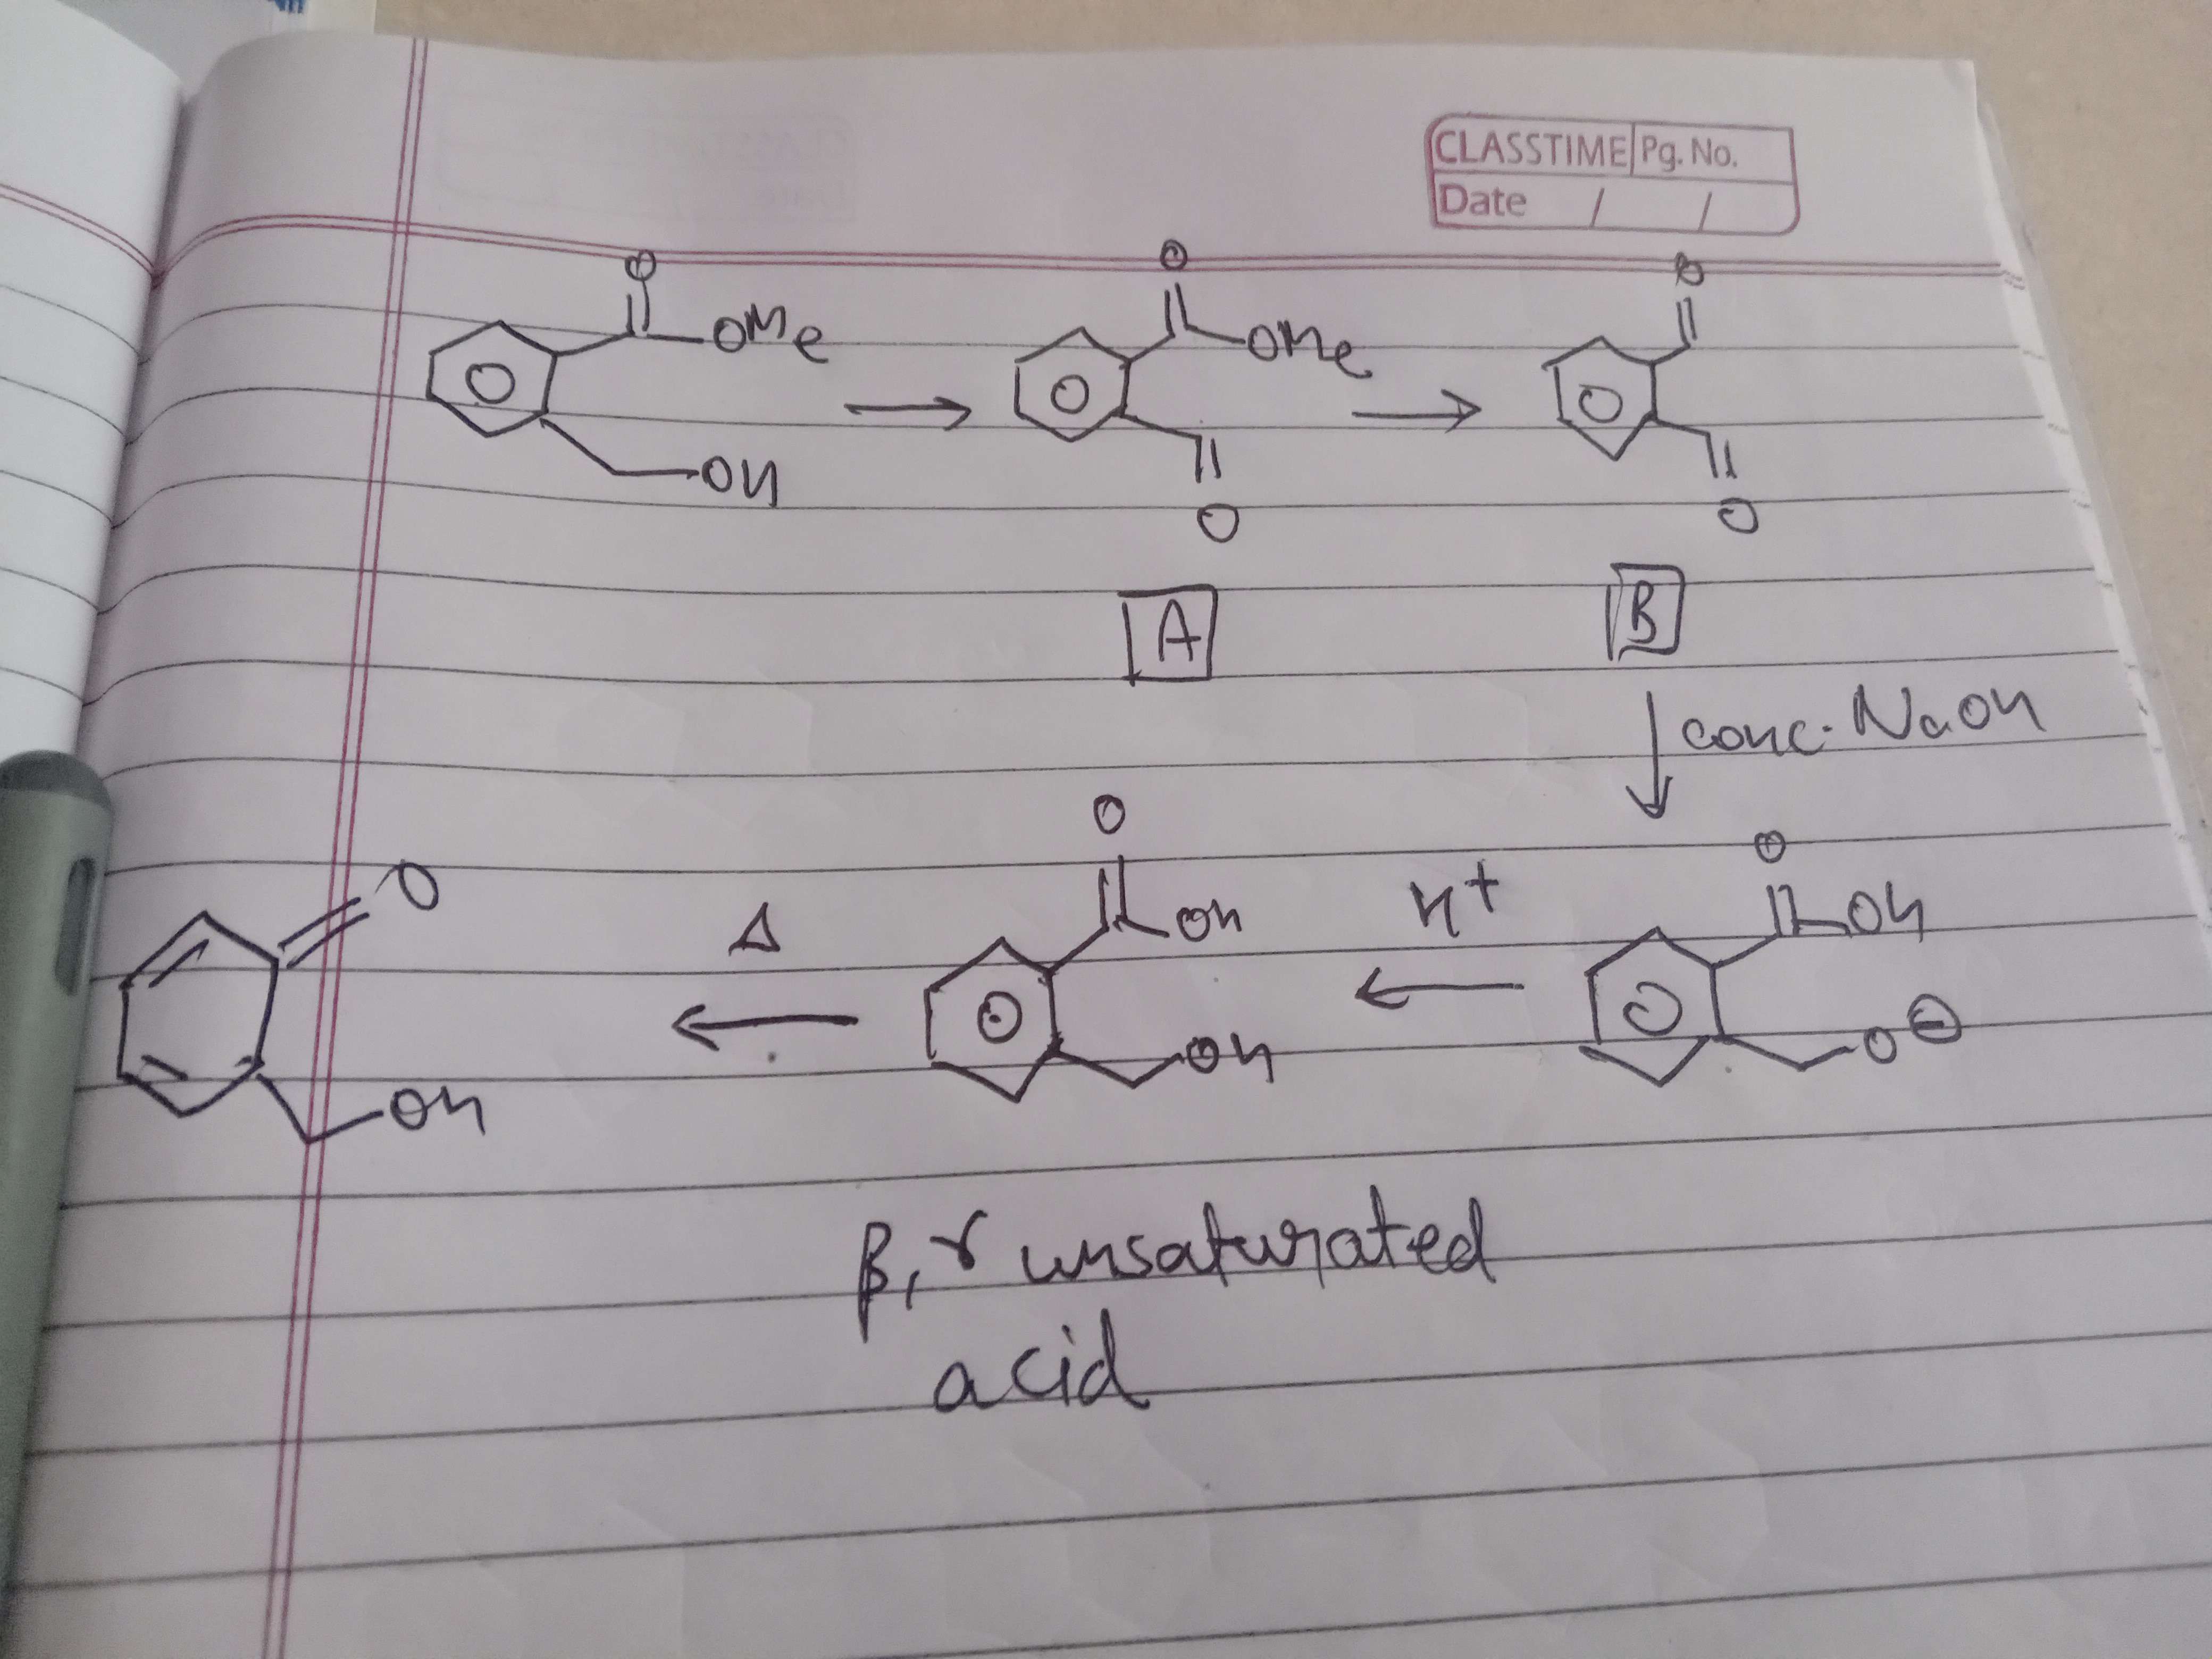 CLASSTIME Pg. No.
Date / /
O O O
OMe OMe
OH O O
A B
conc. NaOH
O O
O Δ OH H+ OH
OH OH O⊖
β, γ unsaturated
acid